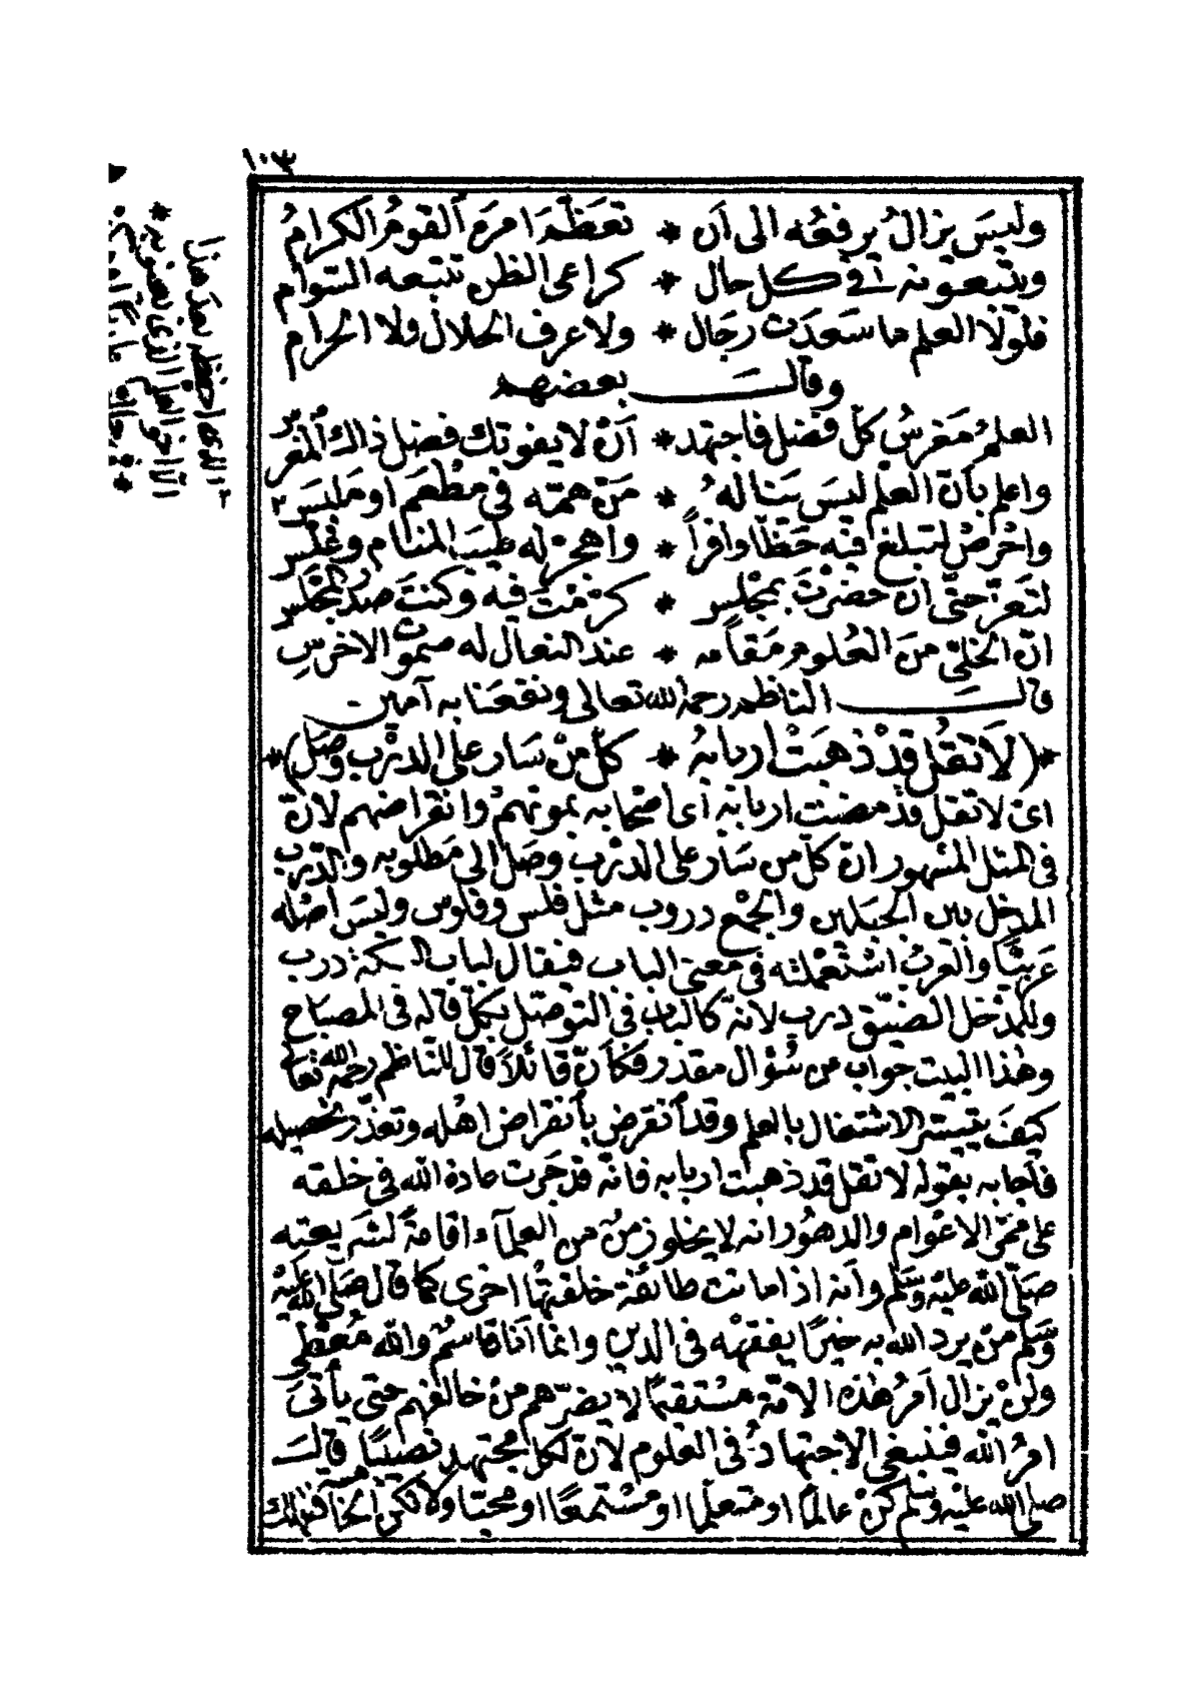 ١٠٣
وليسَ يزالُ يرفعُه الى أن * تعظّمَ امرَه القومُ الكرامُ
ويتبعونه في كل حال * كراعى الظان تتبعه السوام
فلولا العلم ما سعدت رجال * ولا عرف الحلال ولا الحرام
وقال بعضهم
العلمُ مَغرسُ كلّ فضل فاجتهد * أنْ لا يفوتك فضل ذاك المغرس
واعلم بأن العلم ليسَ يناله * مَنْ همّه في مطْعَم او ملبسَ
واحْرصْ لتبلغ فيْه حَظّا وافراً * واهجرْ له طيبَ المنام وغَلّسِ
لتعزّ حتّى ان حضرْتَ بمجْلس * كرّمْتَ فيه وكنتَ صدْر المجْلس
انّ الخلىّ منَ العُلوم مَقامه * عند النعال له صموت الاخرسِ
قال الناظم رحمه الله تعالى ونفعنا به آمين
*(لاَ تقُل قدْ ذهبَتْ اربابهُ * كلّ منْ سَار علَى الدرْب وصَل)*
اىْ لا تقل قدْ مضت اربابه أى اصْحابه بموتهمْ وانقراضهم لانّ
فى المثل المشهور انّ كلّ من سَار على الدرْب وصَل الى مَطلوبه والدّرْبُ
المدخل بين الجبلين والجمْع دروب مثْل فلس وفلوس وليسَ اصْله
عَربيّا والعَربُ اسْتعْملته فى معنى الباب فيقال لباب السكة درب
وللمدْخل الضيّق درب لانّه كالباب فى التوصّل بكلّ قاله فى المصباح
وهٰذا البيت جواب من سُؤال مقدر فكأنّ قائلاً قال للنّاظم رحمه الله تعالى
كيفَ يتيسّر الاشتغال بالعلم وقد انقرض بانقراض اهْله وتعذّر تحْصيله
فأجابه بقوله لا تقل قد ذهبت اربابه فانّه قدْ جَرت عادة الله فى خلقه
على ممرّ الاعْوام والدهُور انه لا يخلو زمنٌ من العلمآء اقامةً لشريعته
صَلّى الله عليْه وسَلّم وانه اذا ماتت طائفة خلفتهُا اخرى كما قال صَلى الله عليْه
وسَلّم منْ يرد الله به خيرًا يفقهْه فى الدين وانّما أنا قاسمٌ والله مُعْطى
ولنْ يزال أمرُ هٰذه الامّة مسْتقيمًا لا يضرّهم منْ خالفهم حتى يأتىَ
امرُ الله فينبغى الاجتهادُ فى العلوم لانّ لكل مجتهد نصيبًا قال
صلى الله عليْه وسلّم كنْ عالمًا او متعلّما او مسْتمعًا او محبّا ولا تكن الخامسة فتهْلك